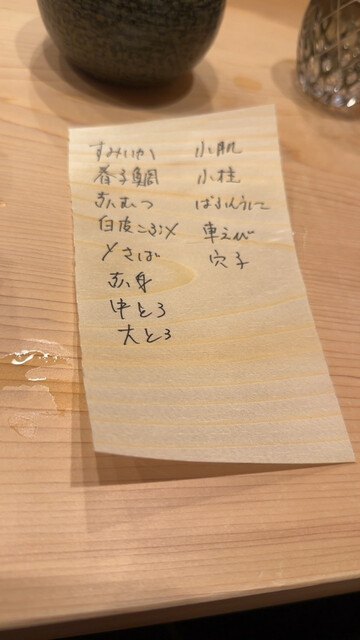 すみいか
春子鯛
赤むつ
白皮こぶ〆
〆さば
赤身
中とろ
大とろ
小肌
小柱
ばふんうに
車えび
穴子